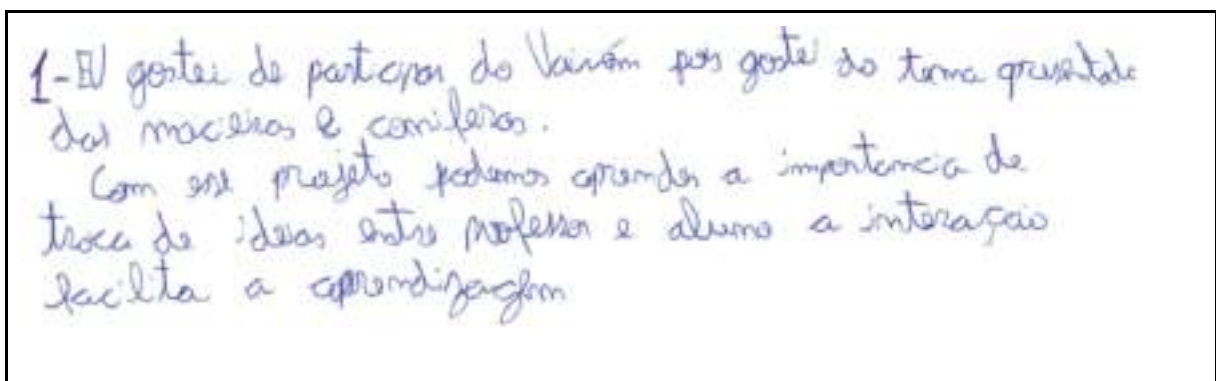 1-EU gostei de participar do Vaivém pois gostei do tema apresentado
das macieiras e coníferas.
Com esse projeto podemos aprender a importancia de
troca de ideias entre professor e aluno a interação
facilta a aprendizagem